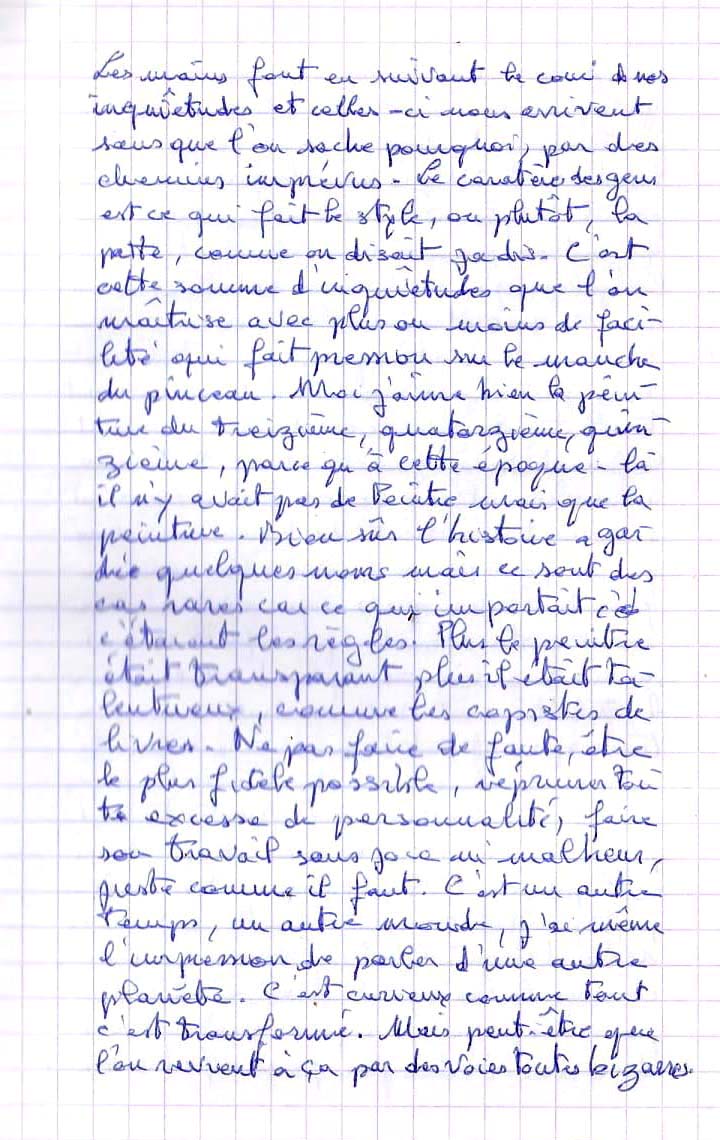 Les mains font en suivant le couci de nos
inquiétudes et celles-ci nous arrivent
sans que l'on sache pourquoi, par des
chemins imprévus. Le caratère des gens
est ce qui fait le style, ou plutôt, la
patte, comme on disait jadis. C'est
cette somme d'inquiétudes que l'on
maîtrise avec plus ou moins de faci-
lité qui fait pression sur le manche
du pinceau. Moi j'aime bien la pein-
ture du treizième, quatorzième, quin-
zième, parce qu'à cette époque-là
il n'y avait pas de Peintre mais que la
peinture. Bien sûr l'histoire a gar-
dé quelques noms mais ce sont des
cas rares car ce qui importait
c'étaient les règles. Plus le peintre
était transparant plus il était ta-
lentueux, comme les copistes de
livres. Ne pas faire de faute, être
le plus fidèle possible, réprimer tou
te excesse de personnalité, faire
son travail sans joie ni malheur,
juste comme il faut. C'est un autre
temps, un autre monde, j'ai même
l'impression de parler d'une autre
planète. C'est curieux comme tout
c'est transformé. Mais peut-être que
l'on revient à ça par des voies toutes bizarres.